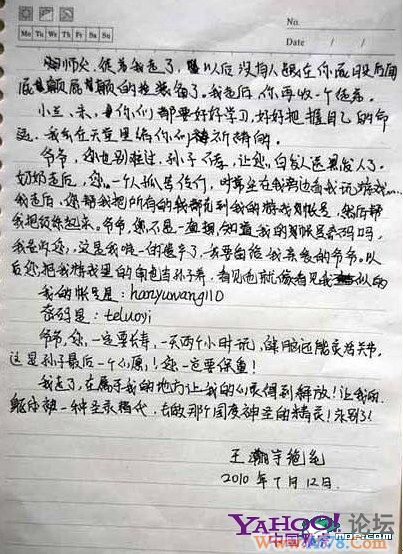 No.
Mo Tu We Th Fr Sa Su
Date / /
师父，徒弟我走了，以后没有人跟在你屁股后面
屁颠屁颠的捡装备了。我走后，你再收一个徒弟。
你们都要好好学习，好好把握自己的命
运，我会在天堂里给你们祈祷的。
爷爷，您也别难过，孙子不孝，让您白发人送黑发人了。
奶奶走后，您一个人孤苦伶仃，时常坐在我旁边看我玩游戏……
我走后，您帮我把所有的钱都充到我的游戏账号里，然后帮
我把级练起来。爷爷，您不是一直想知道我的账号密码吗，
我告诉您，这是我唯一的遗产了，我要留给我亲爱的爷爷。以
后您把我游戏里的角色当孙子养，看见他就像看见我似的
我的帐号是：hanyuwang110
密码是：teluoyi
爷爷，您一定要长寿，一天两个小时玩，健脑还能灵活关节，
这是孙子最后一个心愿！您一定要保重！
我走了，在属于我的地方让我的心灵得到解放！让我
去做那个国度神圣的精灵！永别了！
王瀚宇绝笔
2010年7月12日.
YAHOO! 论坛
中国雅虎